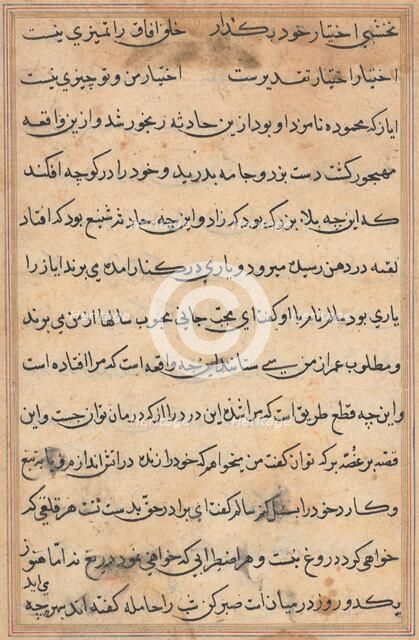 نخشبی اختیار خود بگذار خلق افاق را تمیزی نیست
اختیار اختیار تقدیرست اختیار من و تو چیزی نیست
ایاز که محموده نامزد او بود ازین حادثه رنجور شد و ازین واقعه
مهجور گشت دست بزد و جامه بدرید و خود را در کوچه افکند
که این چه بلا بزرگ بود که زاد و این چه حادثه شنیع بود که افتاد
لقمه در دهن رسیده میرود و یاری در کنار امده می برند ایاز را
یاری بود سالم نام با او گفت ای محب جانی محبوب سالها از من می برند
و مطلوب عمر از من می ستانند این چه واقعه است که مرا افتاده است
و این چه قطع طریق است که مرا شده این درد را از که درمان توان جست و این
قصه بر غصه بر که توان گفت من میخواهم که خود را زنده در اتش اندازم و یا به تیغ
و کارد خود را بسمل کنم سالم گفت ای برادر حق بدست تست هر قلقی که
خواهی کرد دروغ نیست و هر اضطرابی که خواهی نمود اما هنوز
یکدو روز در میان است صبر کن شب را حامله گفته اند به بین چه
می اید